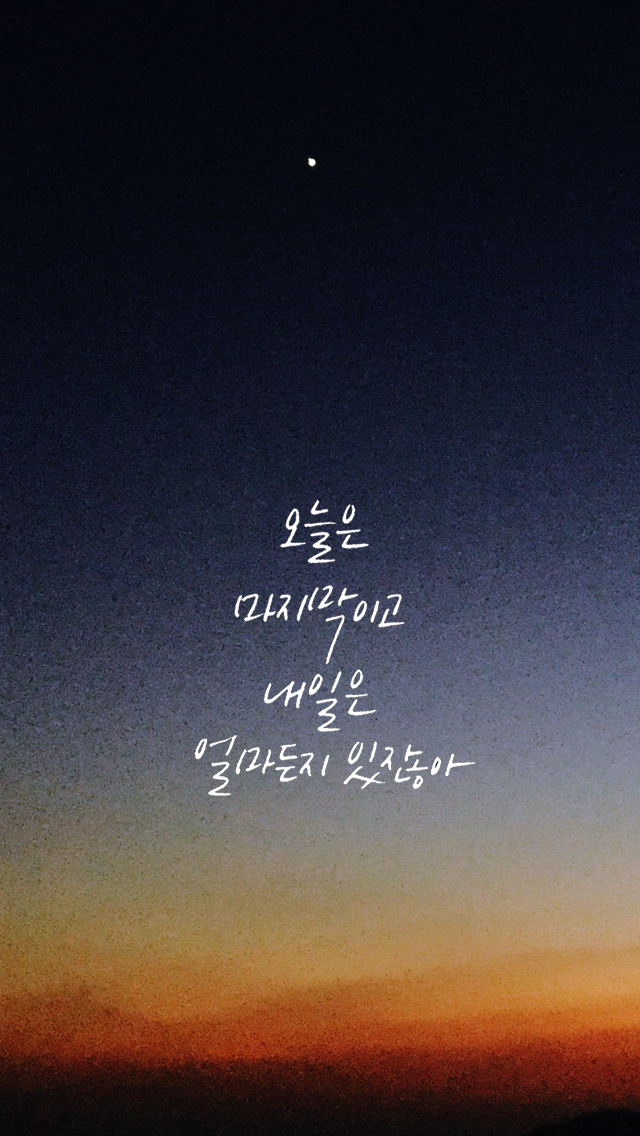 오늘은
마지막이고
내일은
얼마든지 있잖아